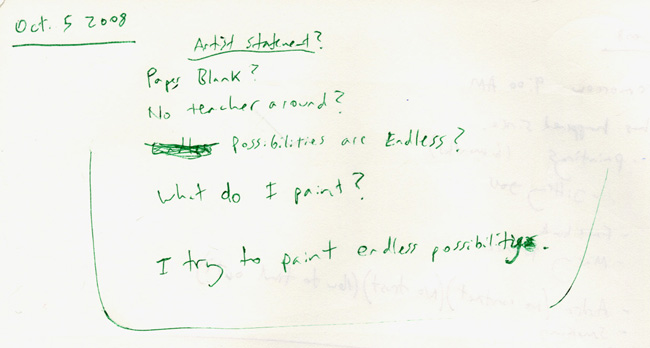 Oct. 5 2008
Artist Statement?
Paper Blank?
No teacher around?
Possibilities are Endless?
What do I paint?
I try to paint endless possibility.
9:00 AM